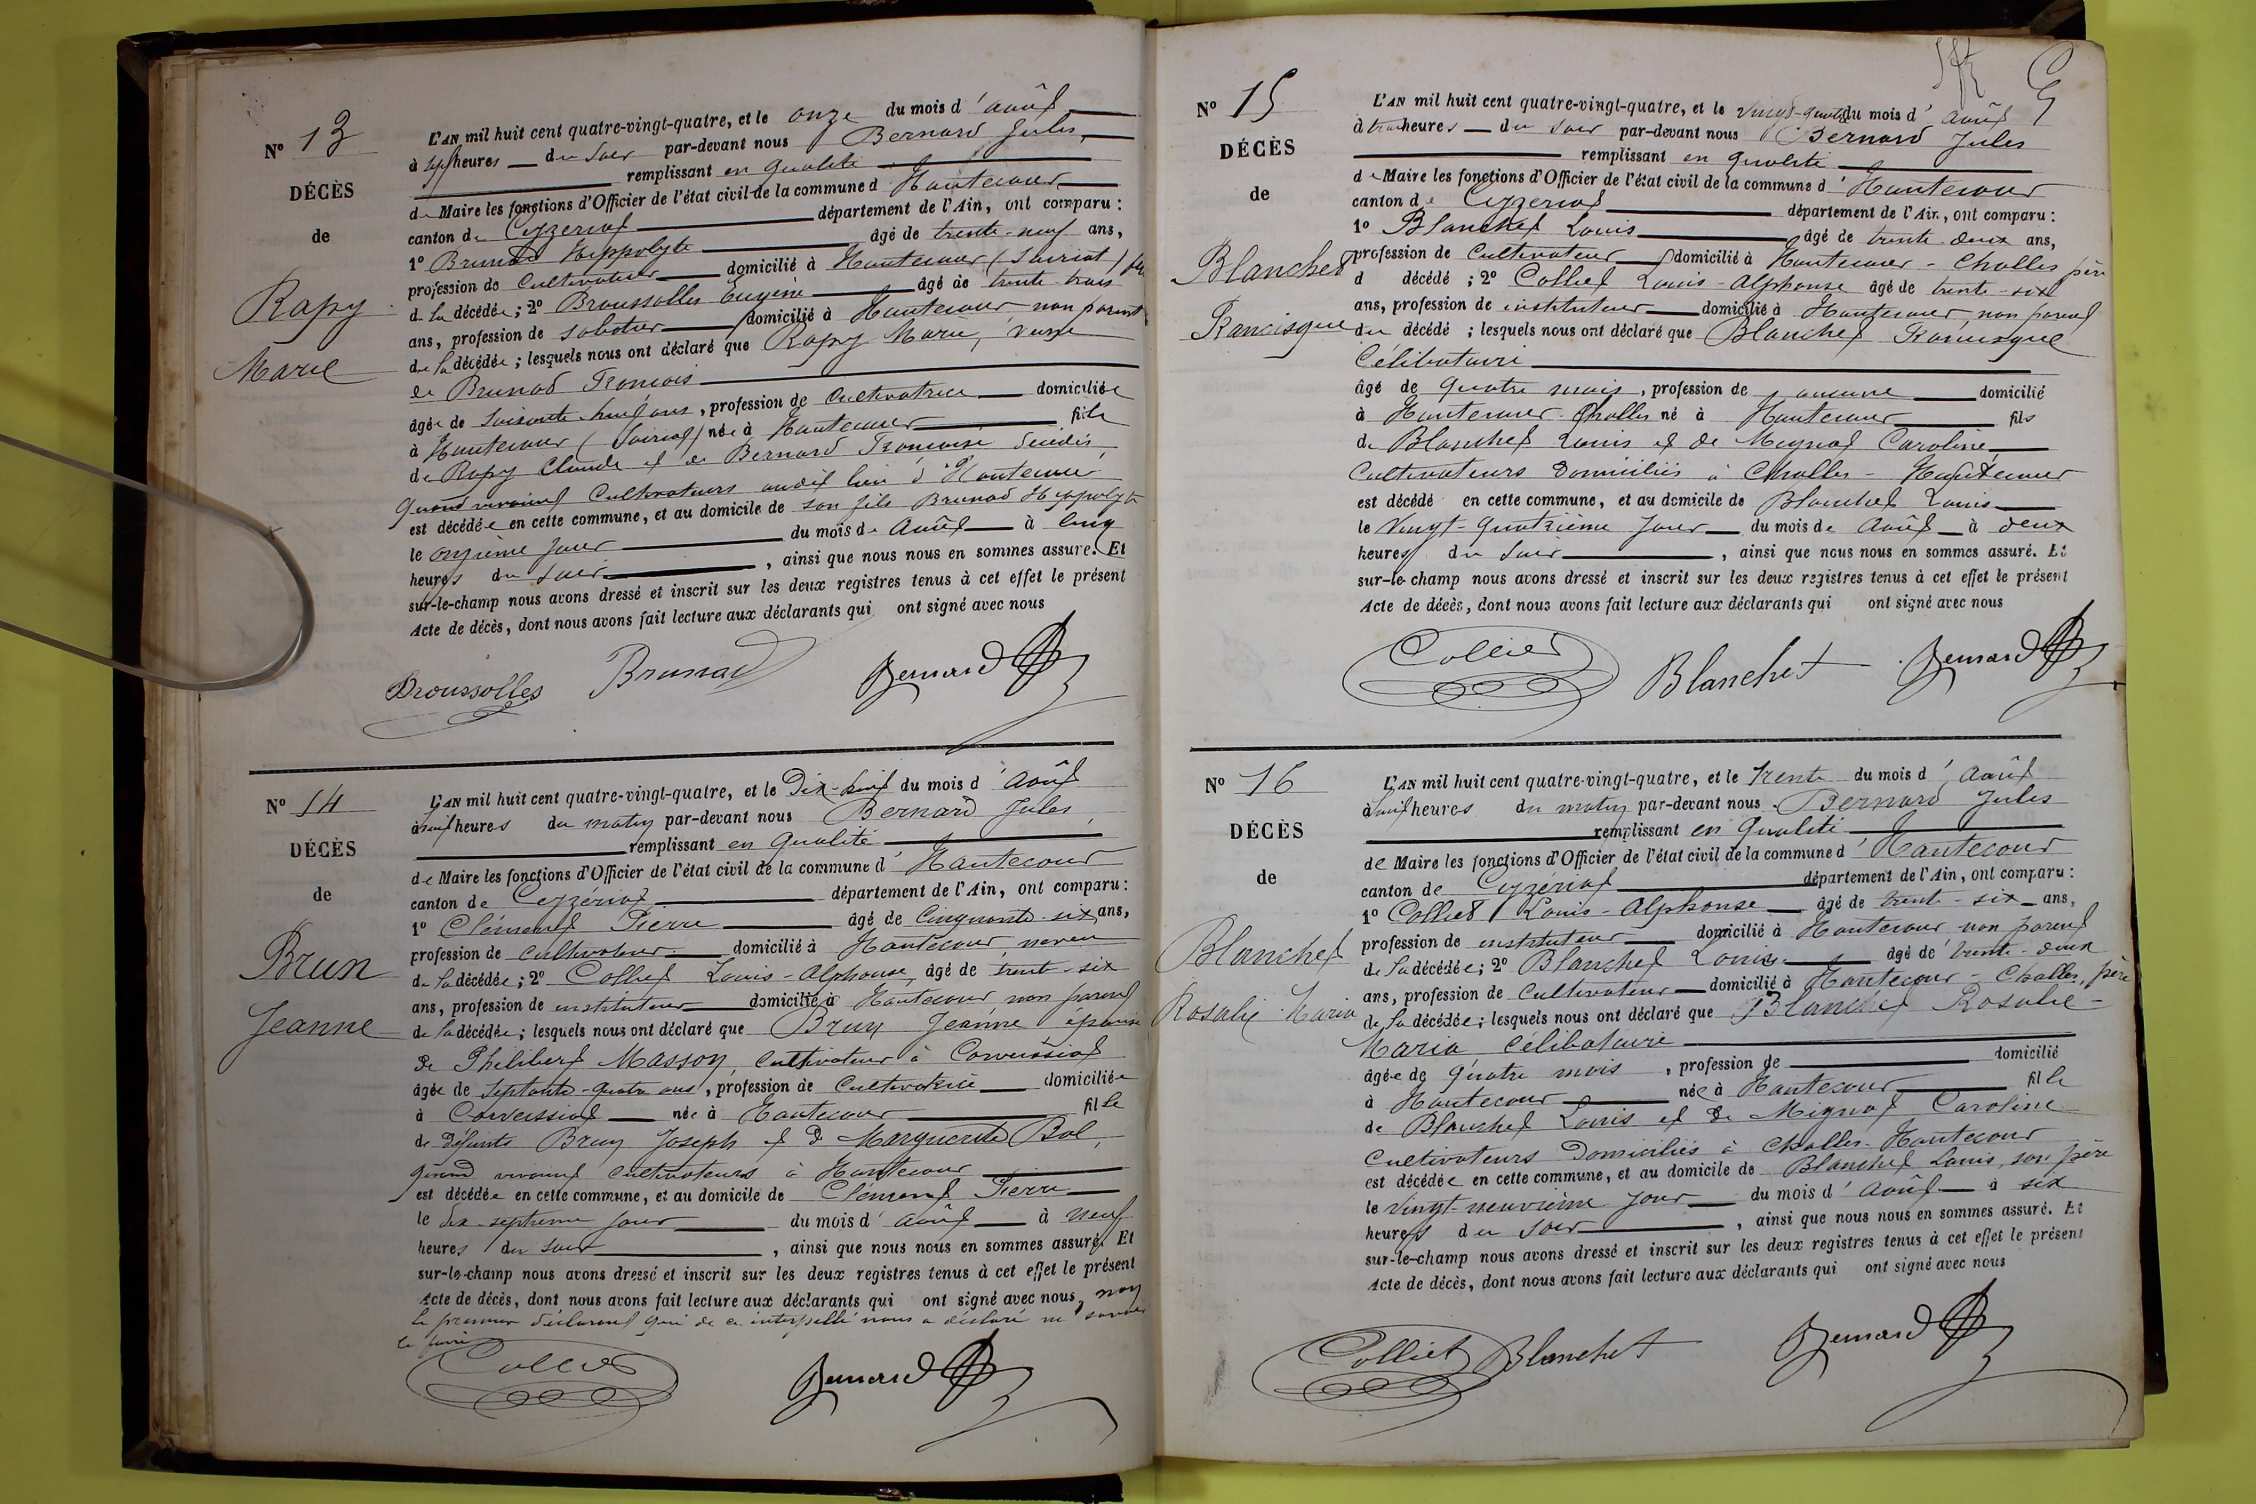 N° 13
DÉCÈS
de
Rapy
Marie
L'AN mil huit cent quatre-vingt-quatre, et le onze du mois d'août
à sept heures du soir par-devant nous Bernard Jules,
remplissant en qualité
de Maire les fonctions d'Officier de l'état civil de la commune d'Hautecour
canton de Ceyzériat département de l'Ain, ont comparu :
1° Brunad Hippolyte âgé de trente-neuf ans,
profession de Cultivateur domicilié à Hautecour (Soiriat) fils
de la décédée ; 2° Broussolles Eugène âgé de trente-trois
ans, profession de sabotier domicilié à Hautecour non parent
de la décédée ; lesquels nous ont déclaré que Rapy Marie, veuve
de Brunad François
âgée de soixante-huit ans, profession de Cultivatrice domiciliée
à Hautecour (Soiriat) née à Hautecour fille
de Rapy Claude et de Bernard Françoise décédés,
quand vivaient Cultivateurs audit lieu d'Hautecour
est décédée en cette commune, et au domicile de son fils Brunad Hippolyte
le onzième jour du mois de Août à cinq
heures du soir, ainsi que nous nous en sommes assuré. Et
sur-le-champ nous avons dressé et inscrit sur les deux registres tenus à cet effet le présent
Acte de décès, dont nous avons fait lecture aux déclarants qui ont signé avec nous
Broussolles Brunad Bernard
N° 14
DÉCÈS
de
Brun
Jeanne
L'AN mil huit cent quatre-vingt-quatre, et le Dix-huit du mois d'Août
à huit heures du matin par-devant nous Bernard Jules,
remplissant en qualité
de Maire les fonctions d'Officier de l'état civil de la commune d'Hautecour
canton de Ceyzériat département de l'Ain, ont comparu :
1° Clément Pierre âgé de Cinquante-six ans,
profession de cultivateur domicilié à Hautecour, neveu
de la décédée ; 2° Colliet Louis-Alphonse, âgé de trente-six
ans, profession de instituteur domicilié à Hautecour non parent
de la décédée ; lesquels nous ont déclaré que Brun Jeanne épouse
de Philibert Masson, cultivateur à Corveissiat
âgée de septante-quatre ans, profession de Cultivatrice domiciliée
à Corveissiat née à Hautecour fille
de défunts Brun Joseph et de Marguerite Bol,
quand vivaient cultivateurs à Hautecour
est décédée en cette commune, et au domicile de Clément Pierre
le dix-septième jour du mois d'août à neuf
heures du soir, ainsi que nous nous en sommes assuré. Et
sur-le-champ nous avons dressé et inscrit sur les deux registres tenus à cet effet le présent
Acte de décès, dont nous avons fait lecture aux déclarants qui ont signé avec nous, non
le premier déclarant qui de ce interpellé nous a déclaré ne savoir
le faire
Colliet Bernard
N° 15
DÉCÈS
de
Blanchet
Francisque
L'AN mil huit cent quatre-vingt-quatre, et le vingt-quatre du mois d'août
à trois heures du soir par-devant nous Bernard Jules
remplissant en qualité
de Maire les fonctions d'Officier de l'état civil de la commune d'Hautecour
canton de Ceyzériat département de l'Ain, ont comparu :
1° Blanchet Louis âgé de trente-deux ans,
profession de Cultivateur domicilié à Hautecour-Challes père
d décédé ; 2° Colliet Louis-Alphonse âgé de trente-six
ans, profession de instituteur domicilié à Hautecour, non parent
du décédé ; lesquels nous ont déclaré que Blanchet Francisque
Célibataire
âgé de quatre mois, profession de aucune domicilié
à Hautecour-Challes né à Hautecour fils
de Blanchet Louis et de Meyniat Caroline
Cultivateurs Domiciliés à Challes-Hautecour
est décédé en cette commune, et au domicile de Blanchet Louis
le Vingt-quatrième jour du mois de Août à deux
heures du soir, ainsi que nous nous en sommes assuré. Et
sur-le-champ nous avons dressé et inscrit sur les deux registres tenus à cet effet le présent
Acte de décès, dont nous avons fait lecture aux déclarants qui ont signé avec nous
Colliet Blanchet Bernard
N° 16
DÉCÈS
de
Blanchet
Rosalie Maria
L'AN mil huit cent quatre-vingt-quatre, et le trente du mois d'Août
à huit heures du matin par-devant nous Bernard Jules
remplissant en qualité
de Maire les fonctions d'Officier de l'état civil de la commune d'Hautecour
canton de Ceyzériat département de l'Ain, ont comparu :
1° Colliet Louis-Alphonse âgé de trente-six ans,
profession de instituteur domicilié à Hautecour non parent
de la décédée ; 2° Blanchet Louis âgé de trente-deux
ans, profession de Cultivateur domicilié à Hautecour-Challes, père
de la décédée ; lesquels nous ont déclaré que Blanchet Rosalie-
Maria Célibataire
âgée de quatre mois, profession de domicilié
à Hautecour née à Hautecour fille
de Blanchet Louis et de Mignat Caroline
Cultivateurs Domiciliés à Challes-Hautecour
est décédée en cette commune, et au domicile de Blanchet Louis, son père
le vingt-neuvième jour du mois d'août à six
heures du soir, ainsi que nous nous en sommes assuré. Et
sur-le-champ nous avons dressé et inscrit sur les deux registres tenus à cet effet le présent
Acte de décès, dont nous avons fait lecture aux déclarants qui ont signé avec nous
Colliet Blanchet Bernard